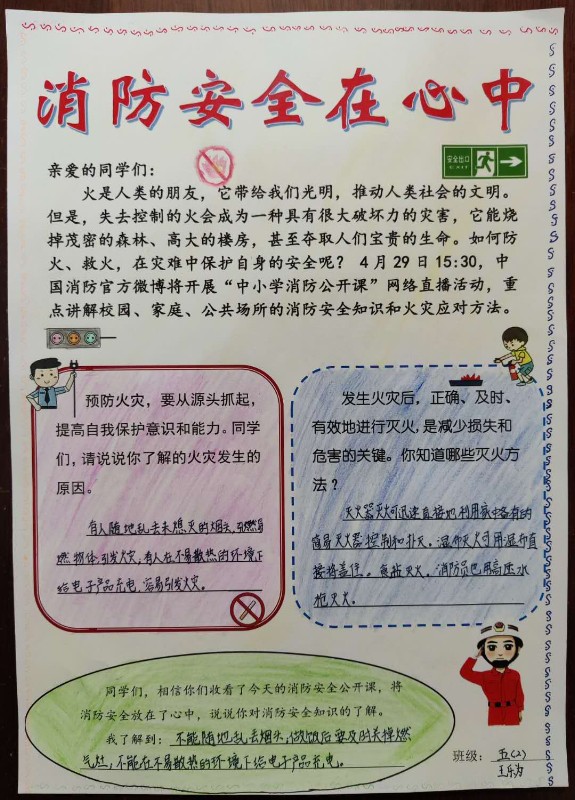 消防安全在心中
安全出口
EXIT
亲爱的同学们：
火是人类的朋友，它带给我们光明，推动人类社会的文明。
但是，失去控制的火会成为一种具有很大破坏力的灾害，它能烧
掉茂密的森林、高大的楼房，甚至夺取人们宝贵的生命。如何防
火、救火，在灾难中保护自身的安全呢？ 4月29日15:30，中
国消防官方微博将开展“中小学消防公开课”网络直播活动，重
点讲解校园、家庭、公共场所的消防安全知识和火灾应对方法。
预防火灾，要从源头抓起，
提高自我保护意识和能力。同学
们，请说说你了解的火灾发生的
原因。
有人随地乱丢未熄灭的烟头，引燃易
燃物体，引发火灾，有人在不易散热的环境下
给电子产品充电，容易引发火灾。
发生火灾后，正确、及时、
有效地进行灭火，是减少损失和
危害的关键。你知道哪些灭火方
法？
灭火器灭火可迅速直接地利用家中备有的
简易灭火器控制和扑灭。湿布灭火可用湿布直
接将盖住。灭火，消防员也用高压水
枪灭火。
同学们，相信你们收看了今天的消防安全公开课，将
消防安全放在了心中，说说你对消防安全知识的了解。
我了解到：不能随地乱丢烟头，做饭后要及时关掉燃
气灶，不能在不易散热的环境下给电子产品充电。
班级：五(2)